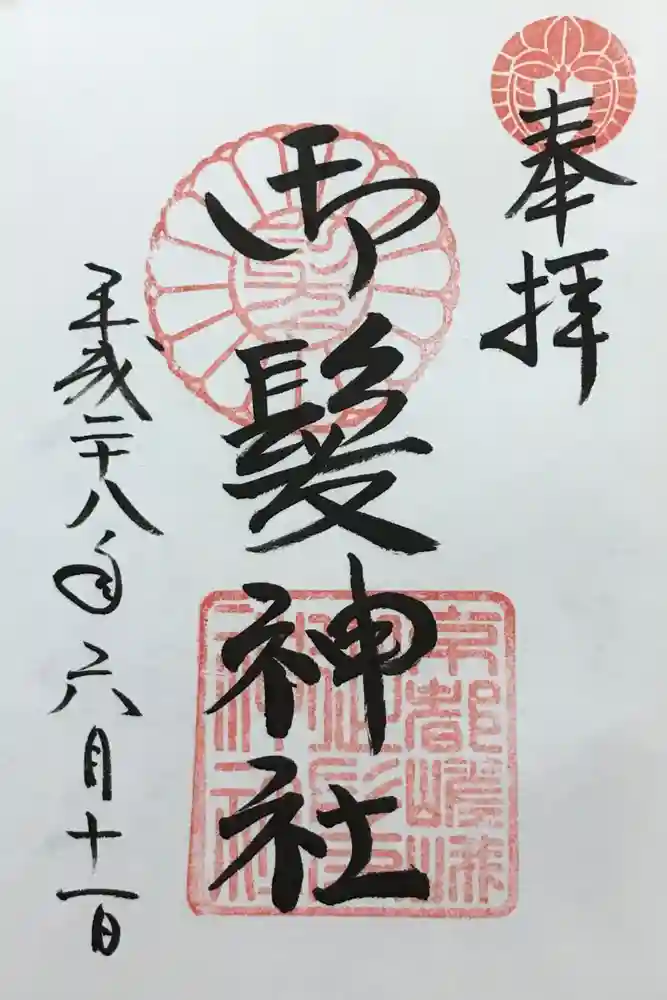 奉拝
御髪神社
平成二十八年六月十一日
京都嵯峨
御髪
神社